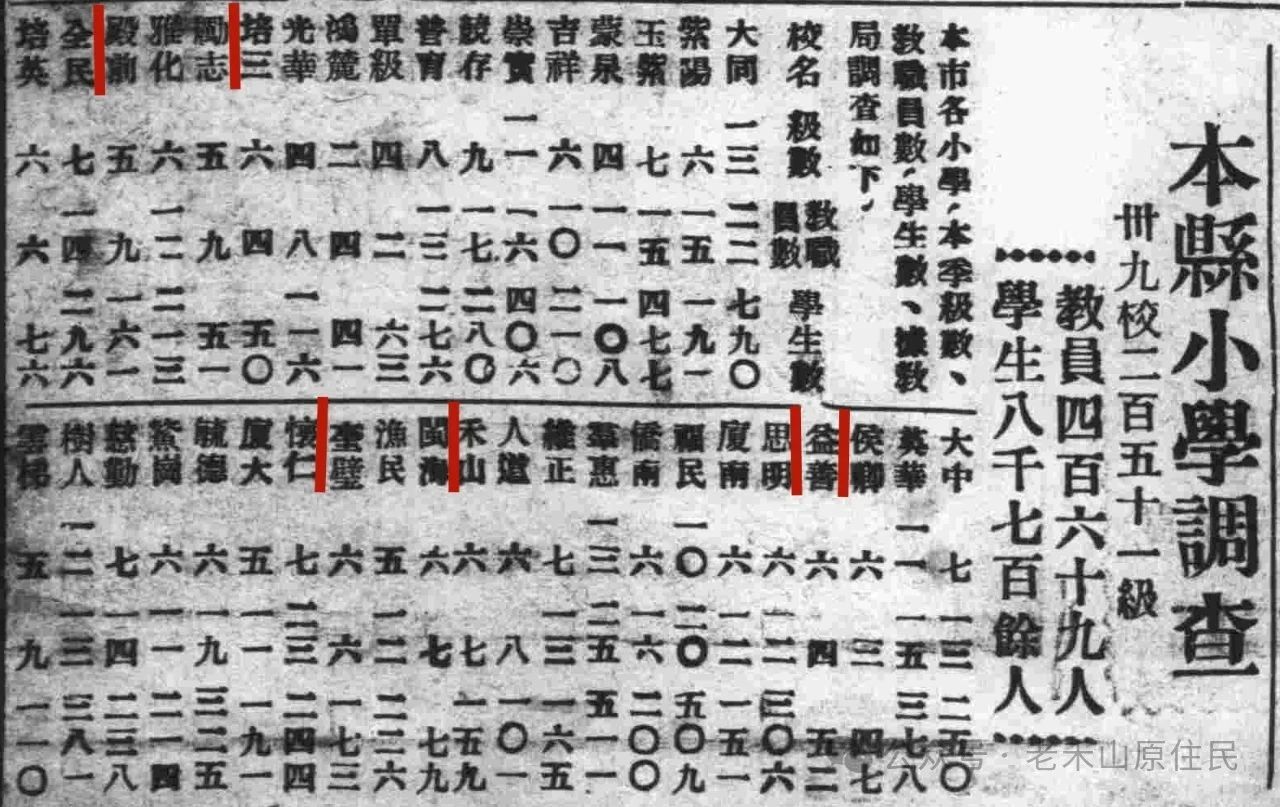 本縣小學調查
卅九校二百五十一級
教員四百六十九人
學生八千七百餘人
本市各小學、本季級數、
教職員數、學生數、據教
局調查如下、
校名 級數 教職員數 學生數
大同 一三 二二 七九〇
紫陽 六 一五 一九一
玉紫 七 一五 四七七
蒙泉 四 一一 一〇八
吉祥 六 一〇 二一〇
崇實 一一 一六 四〇六
競存 九 一七 二八〇
普育 八 一三 二七六
單級 四 二 六三
鴻麓 二 四 四一
光華 四 八 一一六
培三 六 四 五〇
勵志 五 九 五一
雅化 六 一二 二一三
殿前 五 九 一六一
全民 七 一四 二九六
培英 六 六 七六
大中 七 一三 二五〇
英華 一一 一五 三七八
侯卿 六 三 四七
益善 六 四 五二
思明 六 一二 三〇六
廈南 六 一二 一五一
福民 一〇 二〇 五〇九
僑南 六 一六 二〇〇
羣惠 一三 二五 五一一
維正 七 一三 一六五
人道 六 八 一〇一
禾山 六 七 一五九
閩海 六 七 七九
漁民 五 一二 二二六
奎璧 六 六 一七三
懷仁 七 二三 二四四
廈大 五 一一 一九一
毓德 六 一九 三二五
鷺崗 六 一一 二一四
慈勤 七 一四 二三八
樹人 一二 一三 三八一
雲梯 五 九 一一〇
公众号·老禾山原住民